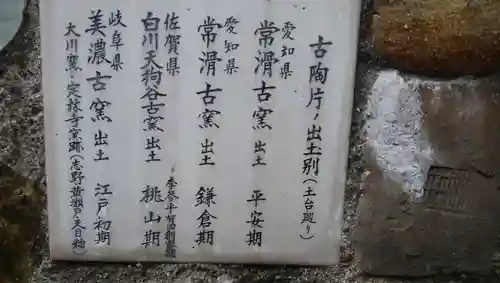 古陶片ノ出土別(土台廻り)
愛知県
常滑古窯 出土 平安期
愛知県
常滑古窯 出土 鎌倉期
佐賀県
白川天狗谷古窯 出土 桃山期
岐阜県
美濃古窯 出土 江戸初期
大川窯・定林寺窯跡(志野黄瀬戸天目釉)